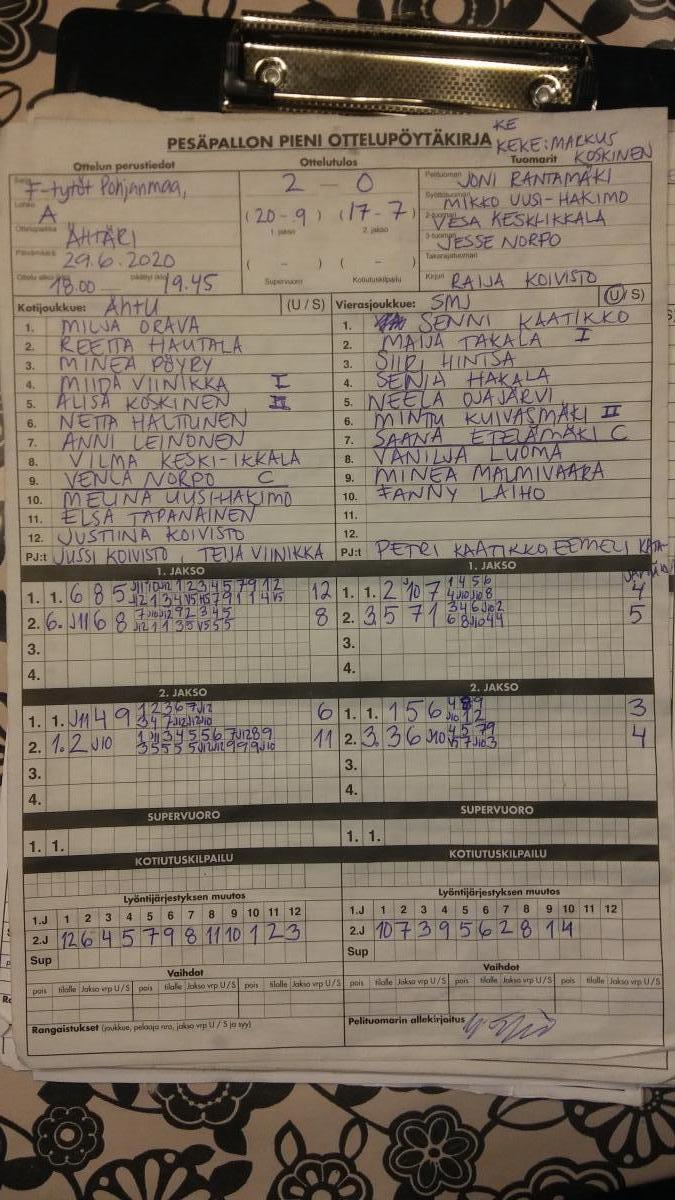 PESÄPALLON PIENI OTTELUPÖYTÄKIRJA
KE
KEKE: MARKUS KOSKINEN
Ottelun perustiedot Ottelutulos Tuomarit
F-tytöt Pohjanmaa,
A
Ottelupaikka ÄHTÄRI
Päivämäärä 29.6.2020
18.00 — 19.45
2 - 0
(20-9) (17-7)
1. jakso 2. jakso
( - ) ( - )
Supervuoro Kotiutuskilpailu
Pelituomari JONI RANTAMÄKI
Syöttötuomari MIKKO UUSI-HAKIMO
2-tuomari VESA KESKI-IKKALA
3-tuomari JESSE NORPO
Takarajatuomari
Kirjuri RAIJA KOIVISTO
Kotijoukkue: ÄhtU (U / S)
1. MILJA ORAVA
2. REETTA HAUTALA
3. MINEA PÖYRY
4. MIIDA VIINIKKA I
5. ALISA KOSKINEN II
6. NETTA HALTTUNEN
7. ANNI LEINONEN
8. VILMA KESKI-IKKALA
9. VENLA NORPO C
10. MELINA UUSI-HAKIMO
11. ELSA TAPANAINEN
12. JUSTIINA KOIVISTO
PJ:t JUSSI KOIVISTO, TEIJA VIINIKKA
Vierasjoukkue: SMJ (U/ S)
1. SENNI KAATIKKO
2. MAIJA TAKALA I
3. SIIRI HINTSA
4. SENJA HAKALA
5. NEELA OJAJÄRVI
6. MINTU KUIVASMÄKI II
7. SAANA ETELÄMÄKI C
8. VANILJA LUOMA
9. MINEA MALMIVAARA
10. FANNY LAIHO
11.
12.
PJ:t PETRI KAATIKKO, EEMELI
1. JAKSO 1. JAKSO
1. 1. 6 8 5 12
2. 6. J11 6 8 8
3.
4.
1. 1. 2 J10 7 4
2. 3. 5 7 1 5
3.
4.
2. JAKSO 2. JAKSO
1. 1. J11 4 9 6
2. 1. 2 J10 11
3.
4.
1. 1. 1 5 6 3
2. 3. 3 6 J10 4
3.
4.
SUPERVUORO SUPERVUORO
1. 1. 1. 1.
KOTIUTUSKILPAILU KOTIUTUSKILPAILU
Lyöntijärjestyksen muutos
1.J 1 2 3 4 5 6 7 8 9 10 11 12
2.J 12 6 4 5 7 9 8 11 10 1 2 3
Sup
Lyöntijärjestyksen muutos
1.J 1 2 3 4 5 6 7 8 9 10 11 12
2.J 10 7 3 9 5 6 2 8 1 4
Sup
Vaihdot Vaihdot
pois tilalle Jakso vrp U / S pois tilalle Jakso vrp U / S pois tilalle Jakso vrp U / S
pois tilalle Jakso vrp U / S pois tilalle Jakso vrp U / S pois tilalle Jakso vrp U / S
Rangaistukset (joukkue, pelaaja nro, jakso vrp U / S ja syy)
Pelituomarin allekirjoitus